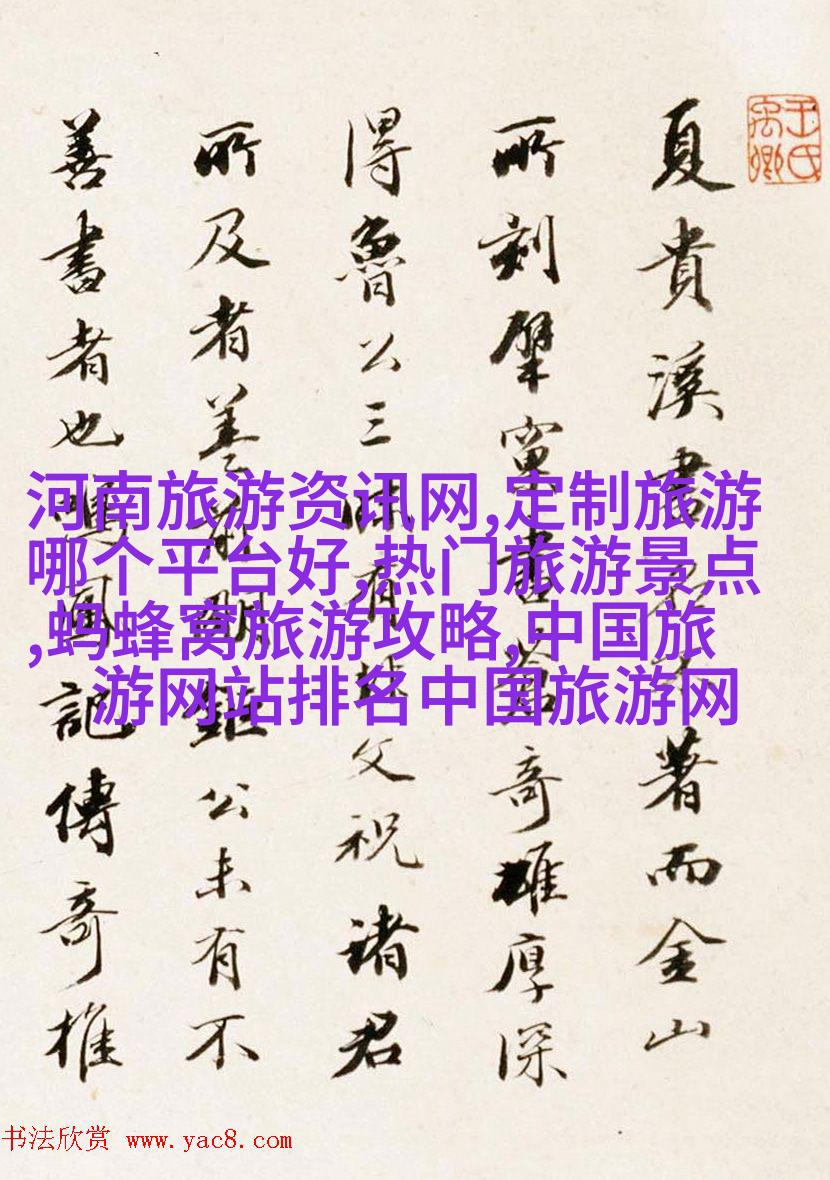 王氏禹卿
夏貴溪書著而金山
所刻擘窠書蒼奇雄厚深
得魯公三昧有文祝諸君
所及者蓋有明鉅公未有不
善書者也鳴鳳記傳奇推
河南旅游资讯网,定制旅游
哪个平台好,热门旅游景点
,蚂蜂窝旅游攻略,中国旅
游网站排名中国旅游网
书法欣赏 www.yac8.com